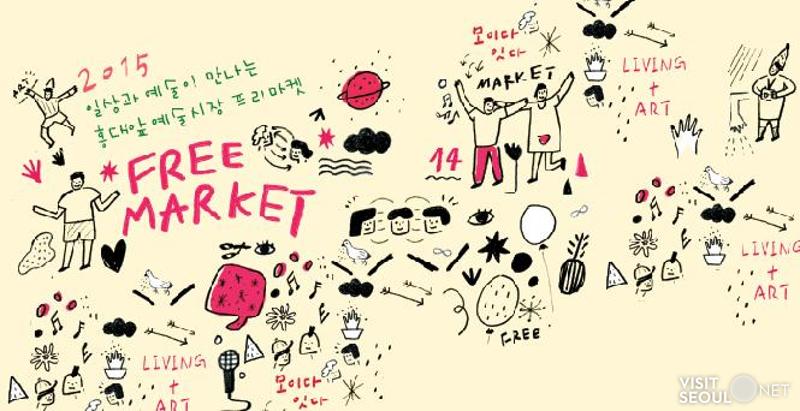 2015
일상과 예술이 만나는
홍대앞 예술시장 프리마켓
FREE
MARKET
모이다
잇다
MARKET
14
LIVING
+
ART
LIVING
+
ART
FREE
LIVING
+
ART
모이다
잇다
VISIT
SEOUL NET